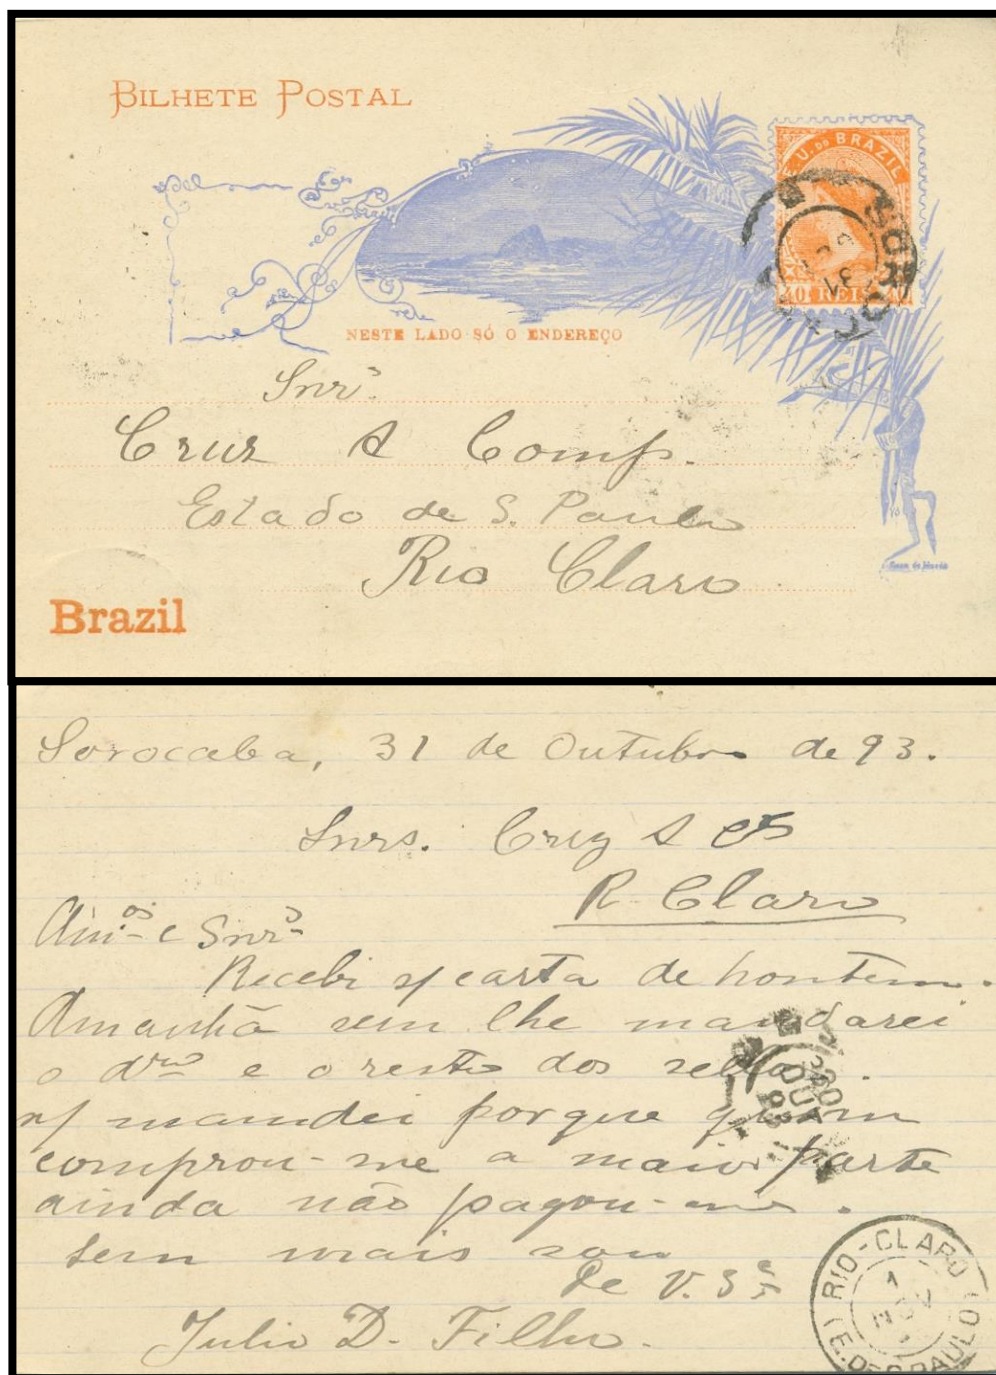 BILHETE POSTAL
E. U. DO BRAZIL
40 REIS 40
SOROC
31
NESTE LADO SÓ O ENDEREÇO
Snrs.
Cruz & Comp.
Estado de S. Paulo
Rio Claro
Brazil
Sorocaba, 31 de Outubro de 93.
Snrs. Cruz & Cª
R. Claro
Am.os e Snr.s
Recebi s/ carta de hontem.
Amanhã sem lhe mandarei
o drº e o resto dos sellos.
n/ mandei porque quem
comprou-me a maior parte
ainda não pagou-me.
Sem mais sou
De V. S.
Julio D. Filho.
OUT
93
RIO-CLARO
1
(E. DE S. PAULO)